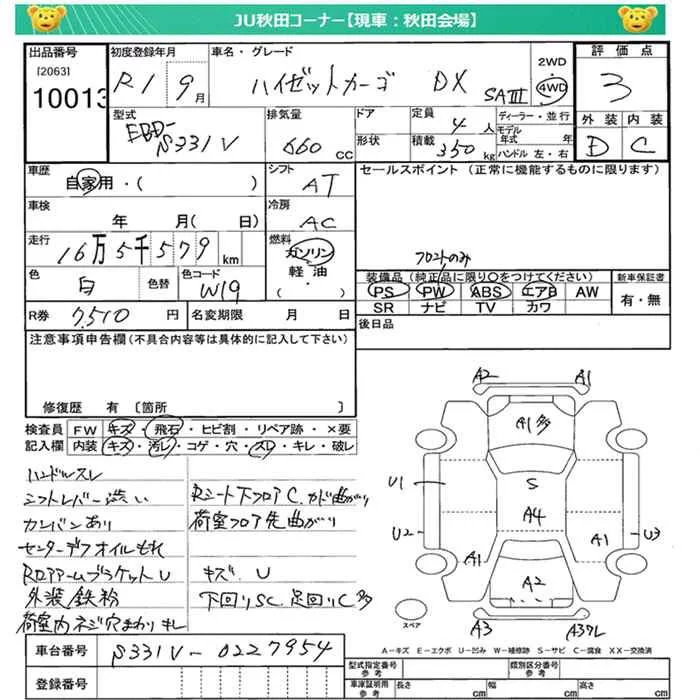 JU秋田コーナー【現車：秋田会場】
出品番号
[2063]
10013
初度登録年月
R1 9月
車名・グレード
ハイゼットカーゴ DX SAⅢ
2WD
4WD
評価点
3
外装 内装
D C
型式
EBD-
S331V
排気量
660 CC
ドア
形状
定員
4人
積載
350kg
ディーラー・並行
モデル年式 年
ハンドル 左・右
車歴
自家用・( )
シフト
AT
セールスポイント (正常に機能するものに限ります)
車検
年 月( 日)
冷房
AC
走行
16万5千579km
燃料
ガソリン
軽油・
( )
フロントのみ
色
白
色替
色コード
W19
装備品(純正品に限り○をつけてください)
PS PW ABS エアB AW
SR ナビ TV カワ
新車保証書
有・無
R券 7,510円
名変期限 月 日
後日品
注意事項申告欄(不具合内容等は具体的に記入して下さい)
修復歴 有 〔箇所 〕
検査員記入欄
FW キズ・飛石・ヒビ割・リペア跡・×要
内装 キズ・汚レ・コゲ・穴・スレ・キレ・破レ
ハンドルスレ
シフトレバー渋い
カンバンあり
センターデフオイルもれ
Rロアアームブラケット U
外装鉄粉
荷室内ネジ穴まわりキレ
Rシート下フロアC、カド曲がり
荷室フロア先曲がり
キズ、U
下回りSC、足回りC多
A2 A1
A1多
U1
S
A4
U2 U3
A1 A1
A2
スペア
A3 A3ワレ
A－キズ E－エクボ U－凹み W－補修跡 S－サビ C－腐食 XX－交換済
車台番号
S331V-0227954
登録番号
型式指定番号 参考
類別区分番号 参考
車庫証明用 参考
長さ cm 幅 cm 高さ cm